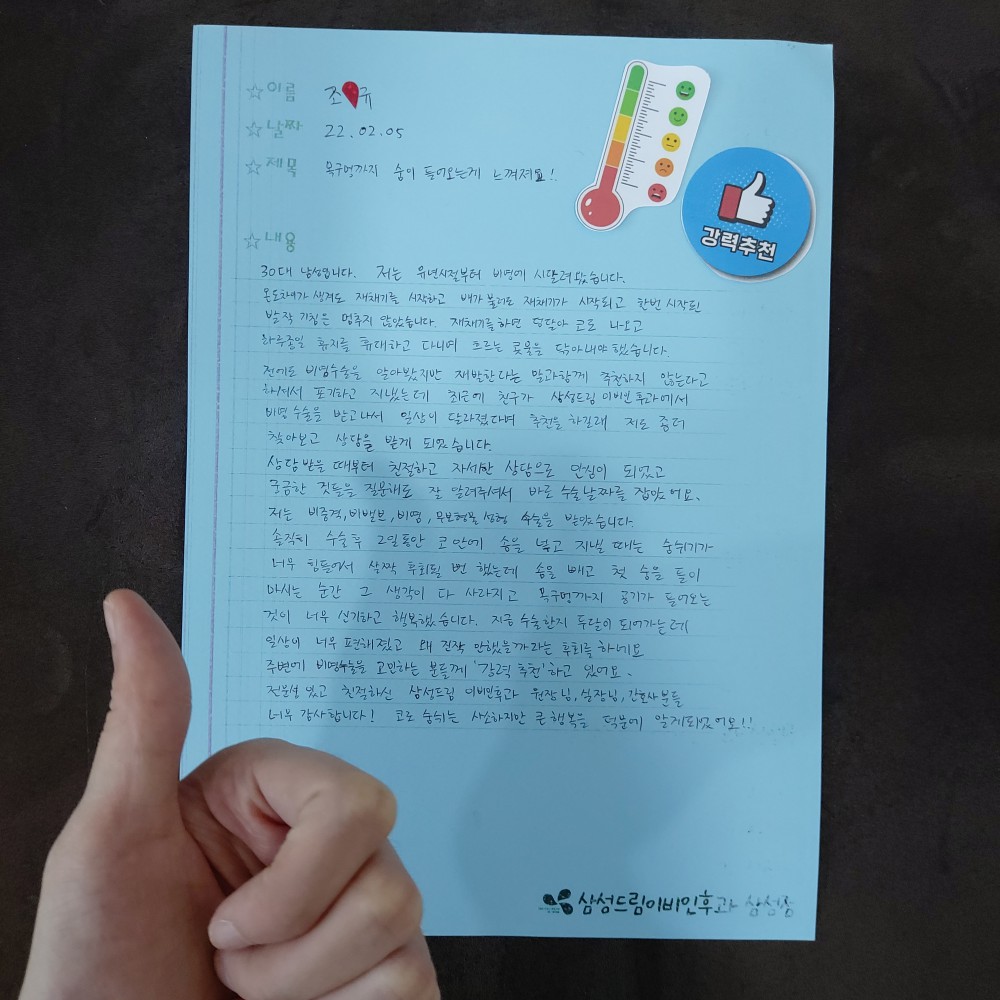 ☆이름 조 규
☆날짜 22.02.05
☆제목 목구멍까지 숨이 들어오는게 느껴져요!
강력추천
☆내용
30대 남성입니다. 저는 유년시절부터 비염에 시달려 왔습니다.
온도차이가 생겨도 재채기를 시작하고 배가 불러도 재채기가 시작되고 한번 시작된
발작 기침은 멈추지 않았습니다. 재채기를 하면 덩달아 코도 나오고
하루종일 휴지를 휴대하고 다니며 흐르는 콧물을 닦아내야 했습니다.
전에도 비염수술을 알아봤지만 재발한다는 말과함께 추천하지 않는다고
하셔서 포기하고 지냈는데 최근에 친구가 삼성드림이비인후과에서
비염 수술을 받고나서 일상이 달라졌다며 추천을 하길래 저도 좀더
찾아보고 상담을 받게 되었습니다.
상담받을 때부터 친절하고 자세한 상담으로 안심이 되었고
궁금한 것들을 질문해도 잘 알려주셔서 바로 수술날짜를 잡았어요.
저는 비중격, 비밸브, 비염, 무보형물 성형 수술을 받았습니다.
솔직히 수술 후 2일동안 코 안에 솜을 넣고 지낼 때는 숨쉬기가
너무 힘들어서 살짝 후회될 뻔 했는데 솜을 빼고 첫 숨을 들이
마시는 순간 그 생각이 다 사라지고 목구멍까지 공기가 들어오는
것이 너무 신기하고 행복했습니다. 지금 수술한지 두달이 되어가는데
일상이 너무 편해졌고 왜 진작 안했을까라는 후회를 하네요
주변에 비염수술을 고민하는 분들께 '강력 추천'하고 있어요.
전문성 있고 친절하신 삼성드림 이비인후과 원장님, 실장님, 간호사 분들
너무 감사합니다! 코로 숨쉬는 사소하지만 큰 행복을 덕분에 알게되었어요!!
삼성드림이비인후과 삼성점